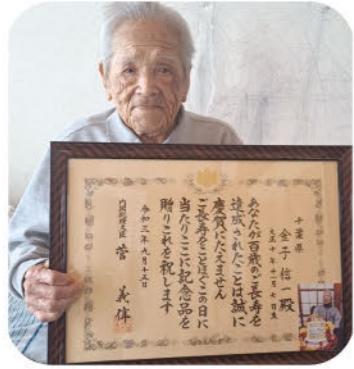 千葉県
金子信一殿
大正十年十一月七日生
あなたが百歳のご長寿を
達成されたことは誠に
慶賀にたえません
ご長寿をことほぐこの日に
当たりここに記念品を
贈りこれを祝します
令和三年九月十五日
内閣総理大臣 菅 義偉